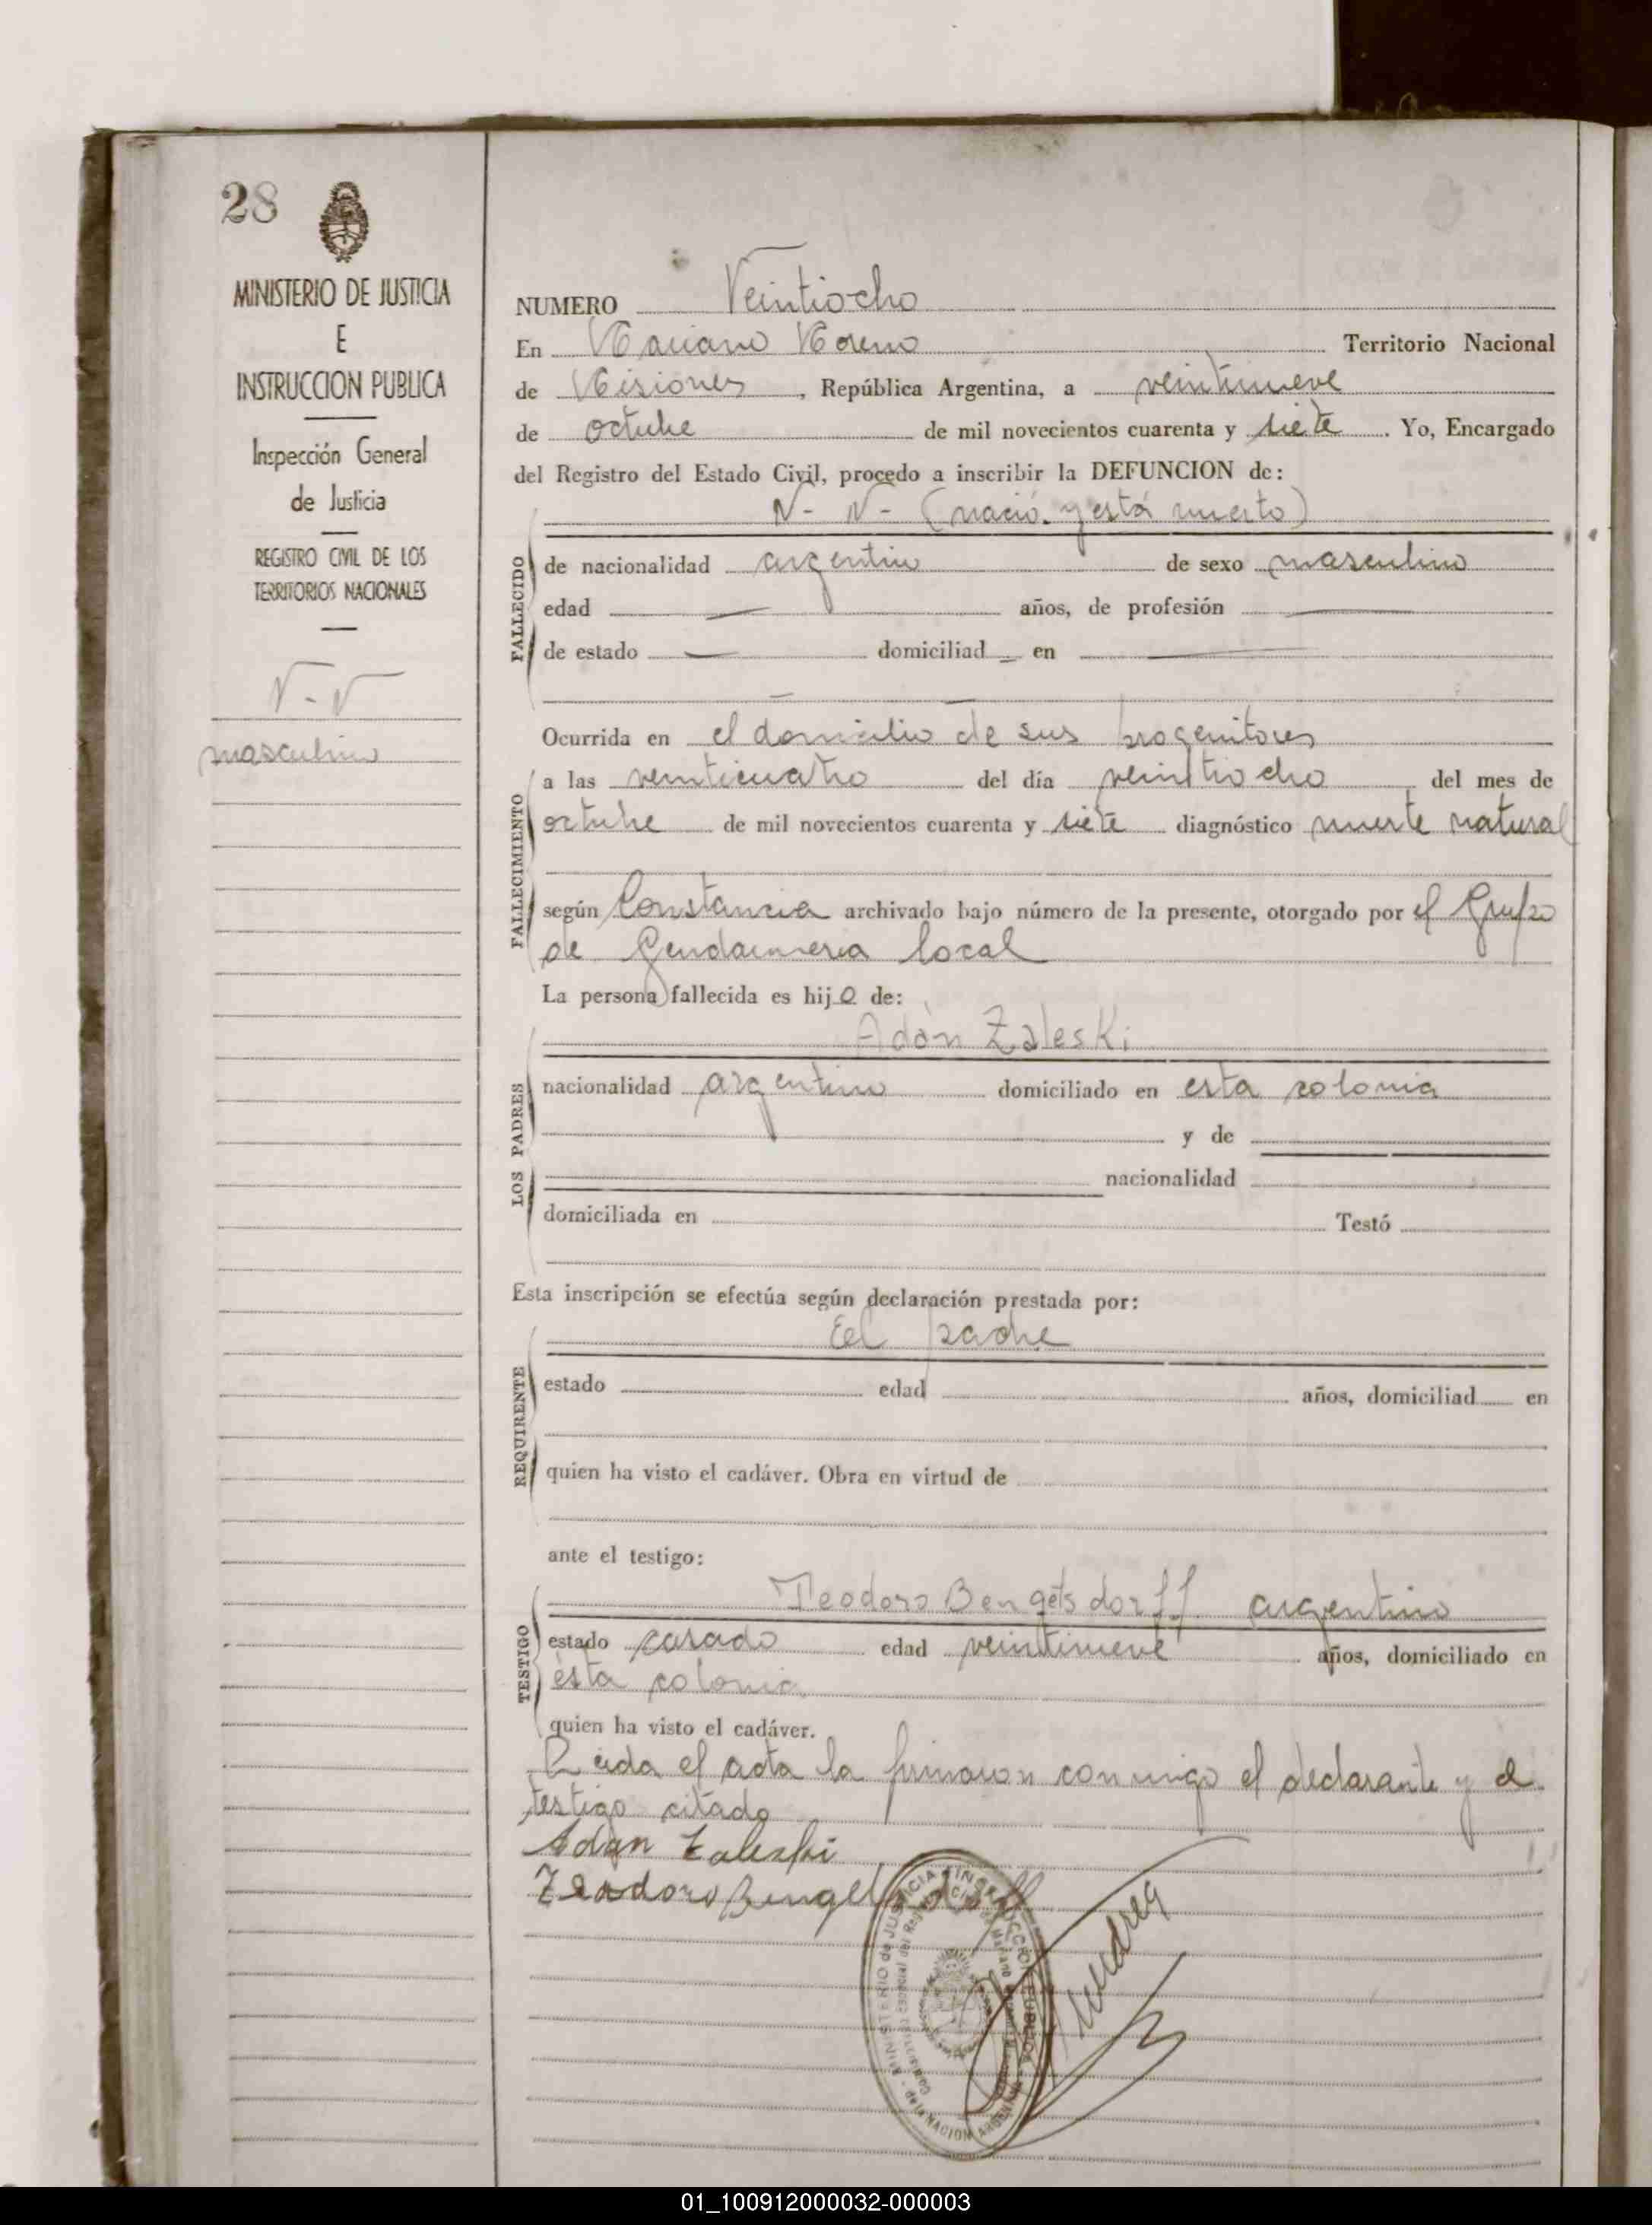 28
MINISTERIO DE JUSTICIA
E
INSTRUCCION PUBLICA
Inspección General
de Justicia
REGISTRO CIVIL DE LOS
TERRITORIOS NACIONALES
N-N
masculino
NUMERO Veintiocho
En Mariano Moreno Territorio Nacional
de Misiones, República Argentina, a veintinueve
de octubre de mil novecientos cuarenta y siete. Yo, Encargado
del Registro del Estado Civil, procedo a inscribir la DEFUNCION de:
N- N- (nació y está muerto)
FALLECIDO
de nacionalidad argentino de sexo masculino
edad — años, de profesión —
de estado — domiciliad - en —
Ocurrida en el domicilio de sus progenitores
FALLECIMIENTO
a las veinticuatro del día veintiocho del mes de
octubre de mil novecientos cuarenta y siete diagnóstico muerte natural
según Constancia archivado bajo número de la presente, otorgado por el Grupo
de Gendarmeria local
La persona fallecida es hijo de:
LOS PADRES
Adán Zaleski
nacionalidad argentino domiciliado en esta colonia
y de
nacionalidad
domiciliada en Testó
Esta inscripción se efectúa según declaración prestada por:
REQUIRENTE
El padre
estado edad años, domiciliad en
quien ha visto el cadáver. Obra en virtud de
ante el testigo:
TESTIGO
Teodoro Bengetsdorff argentino
estado casado edad veintinueve años, domiciliado en
ésta colonia
quien ha visto el cadáver.
Leida el acta la firmaron conmigo el declarante y el
testigo citado
Adan Zaleski
Teodoro
MINISTERIO de JUSTICIA e INSTRUCCION PUBLICA
de la NACION ARGENTINA
01_100912000032-000003